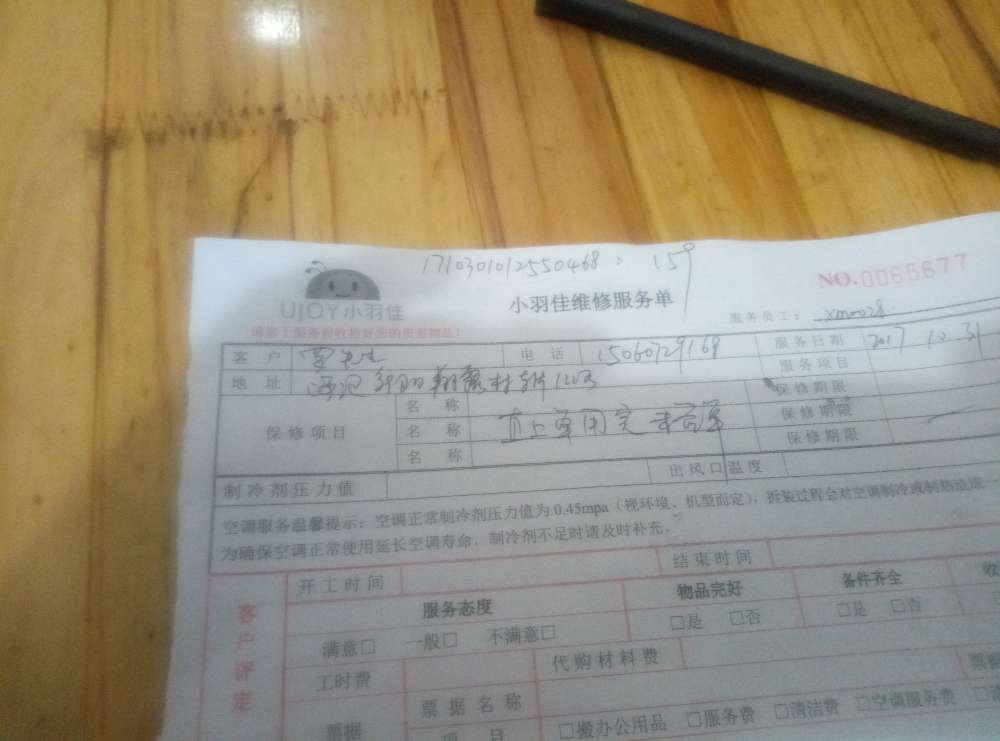 1710301012550468: 159
NO.0065677
UJOY小羽佳
小羽佳维修服务单
服务员工: xm0028
客户 先生 电话 15060729169 服务日期 2017 10 31
服务项目
地址 村 120号 保修期限
保修项目
名称
名称 直上单用完 保修期限
名称 保修期限
制冷剂压力值 出风口温度
空调服务温馨提示:空调正常制冷剂压力值为0.45mpa(视环境、机型而定),拆装过程会对空调制冷或制热造成一
为确保空调正常使用延长空调寿命,制冷剂不足时请及时补充.
客户评定
开工时间 结束时间
服务态度 物品完好 备件齐全 收
满意□ 一般□ 不满意□ □是 □否 □是 □否
工时费 代购材料费
票据 票据名称
项目 □搬办公用品 □服务费 □清洁费 □空调服务费